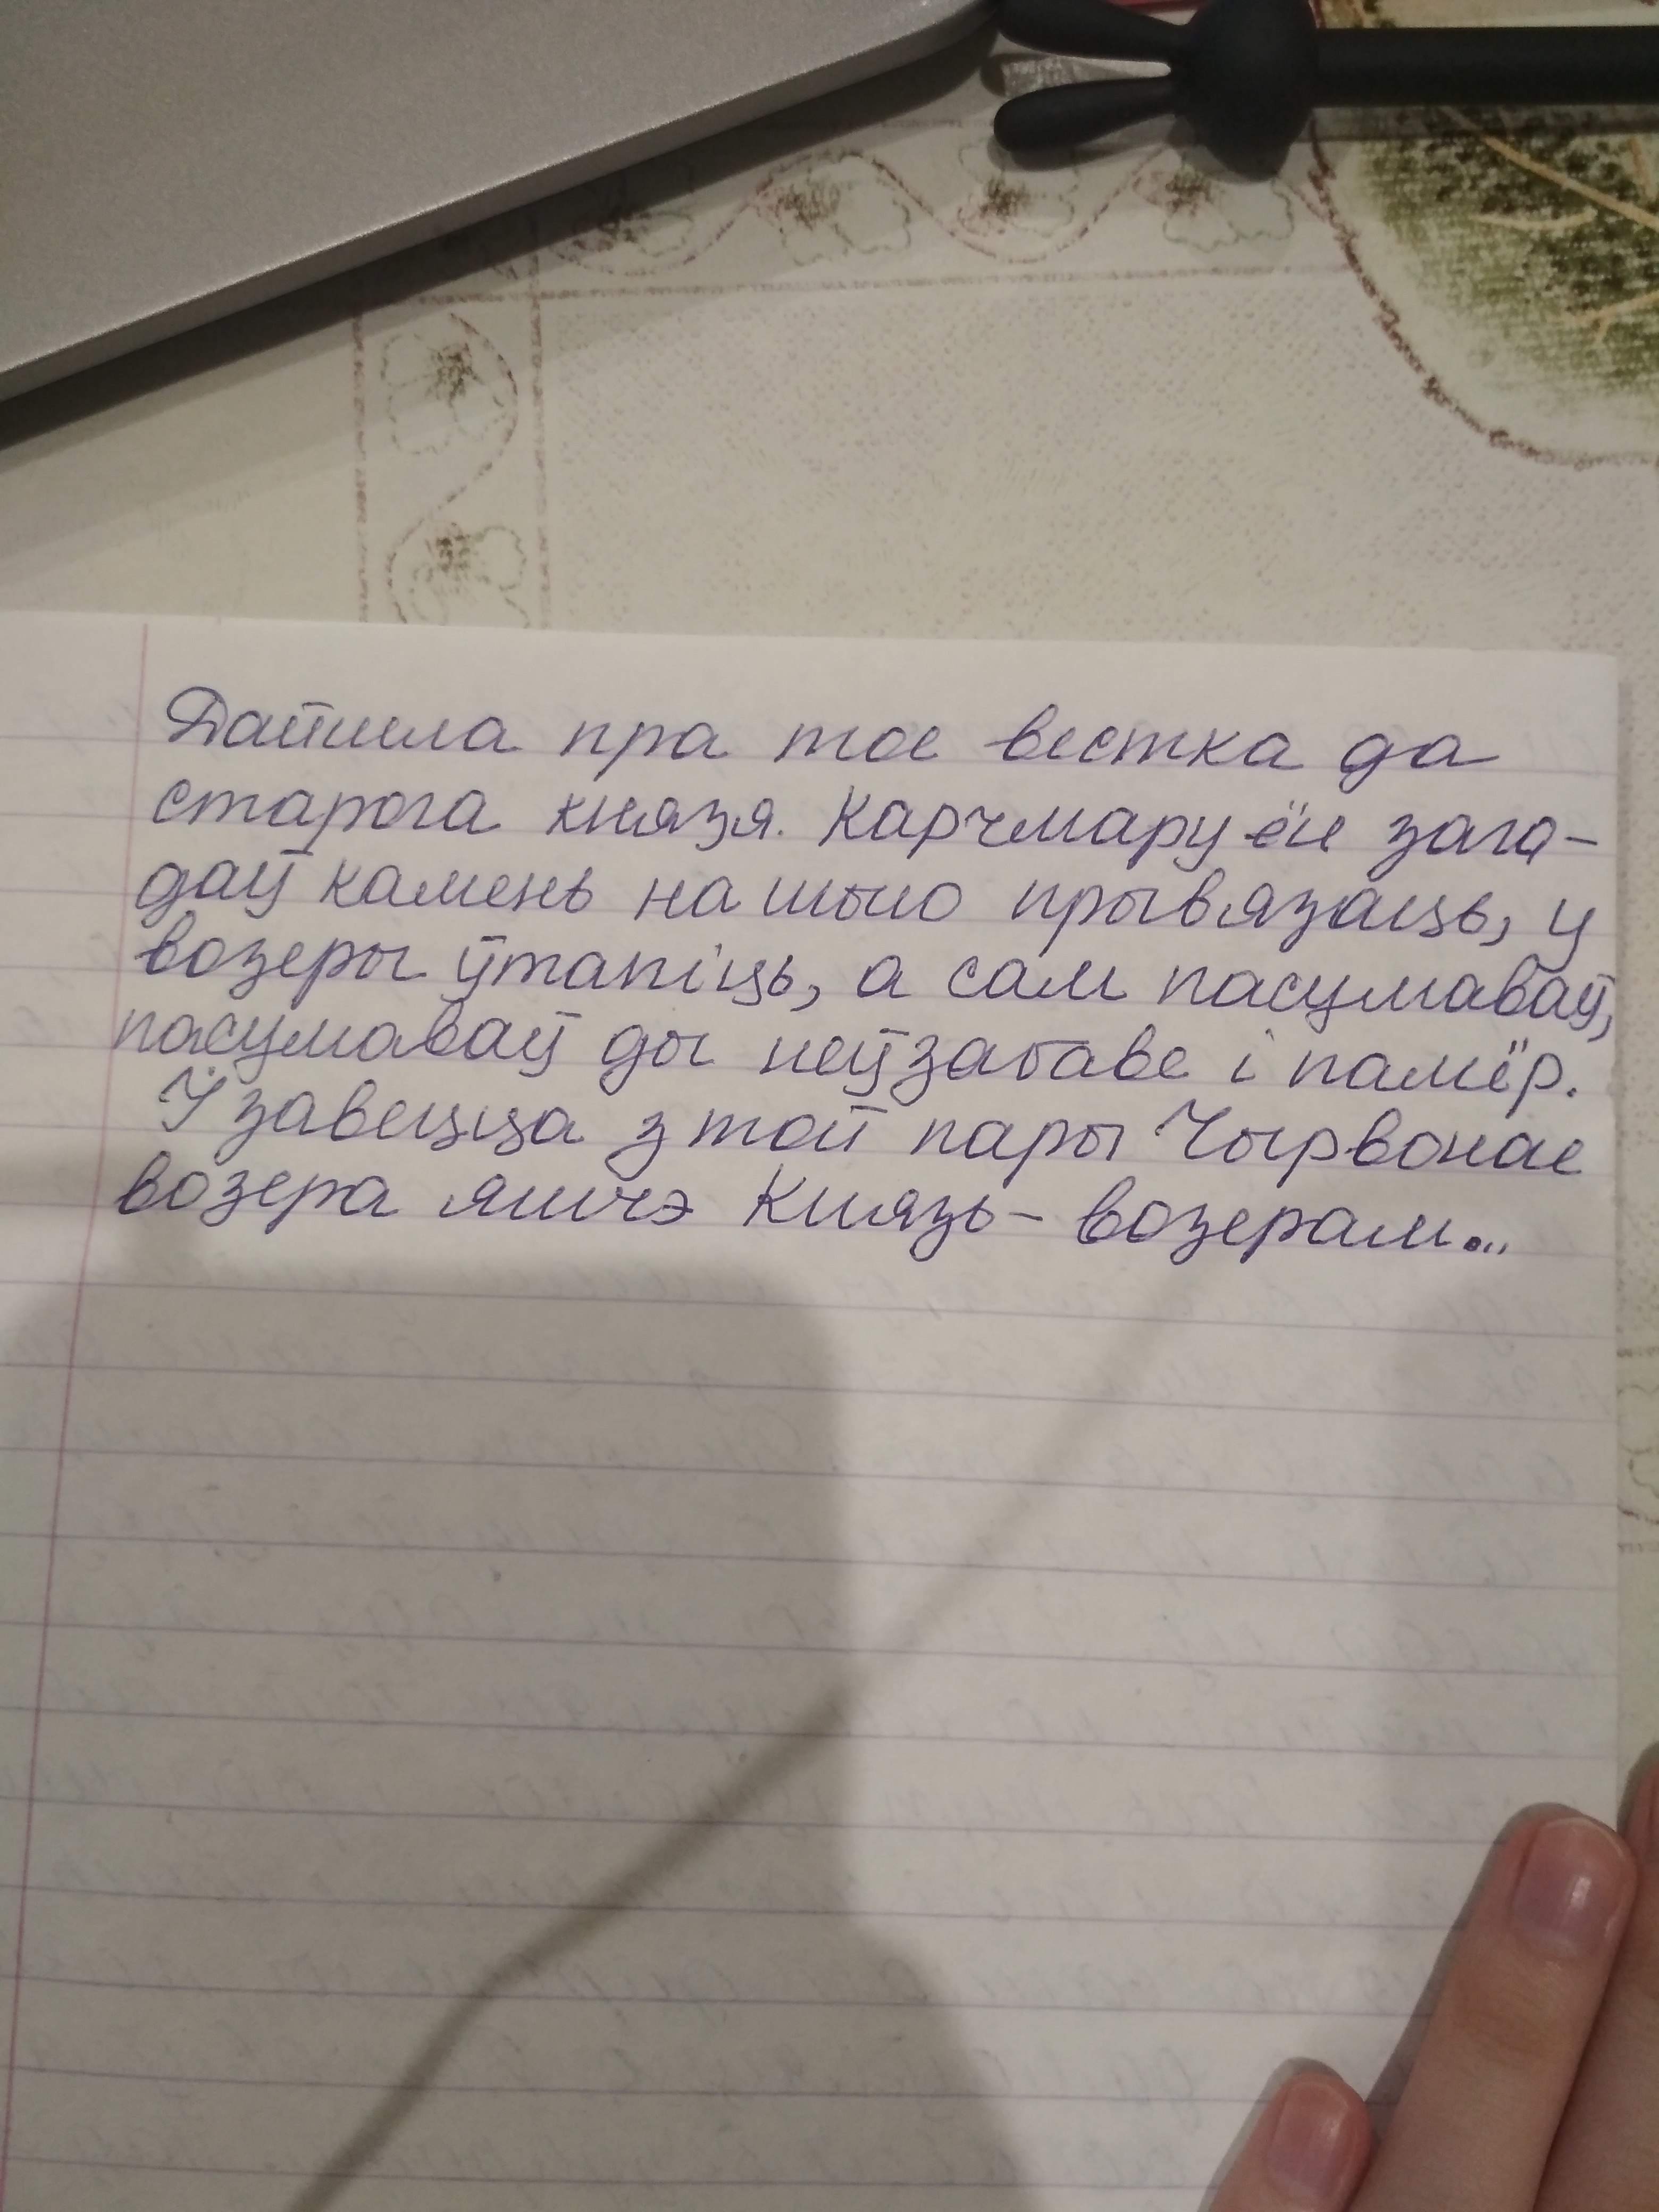 Дайшла пра тое вестка да
старога князя. Карчмару ён зага-
даў камень на шыю прывязаць, у
возеры ўтапіць, а сам пасумаваў,
пасумаваў ды неўзабаве і памёр.
Ўзавецца з той пары Чырвонае
возера яшчэ Князь-возерам...